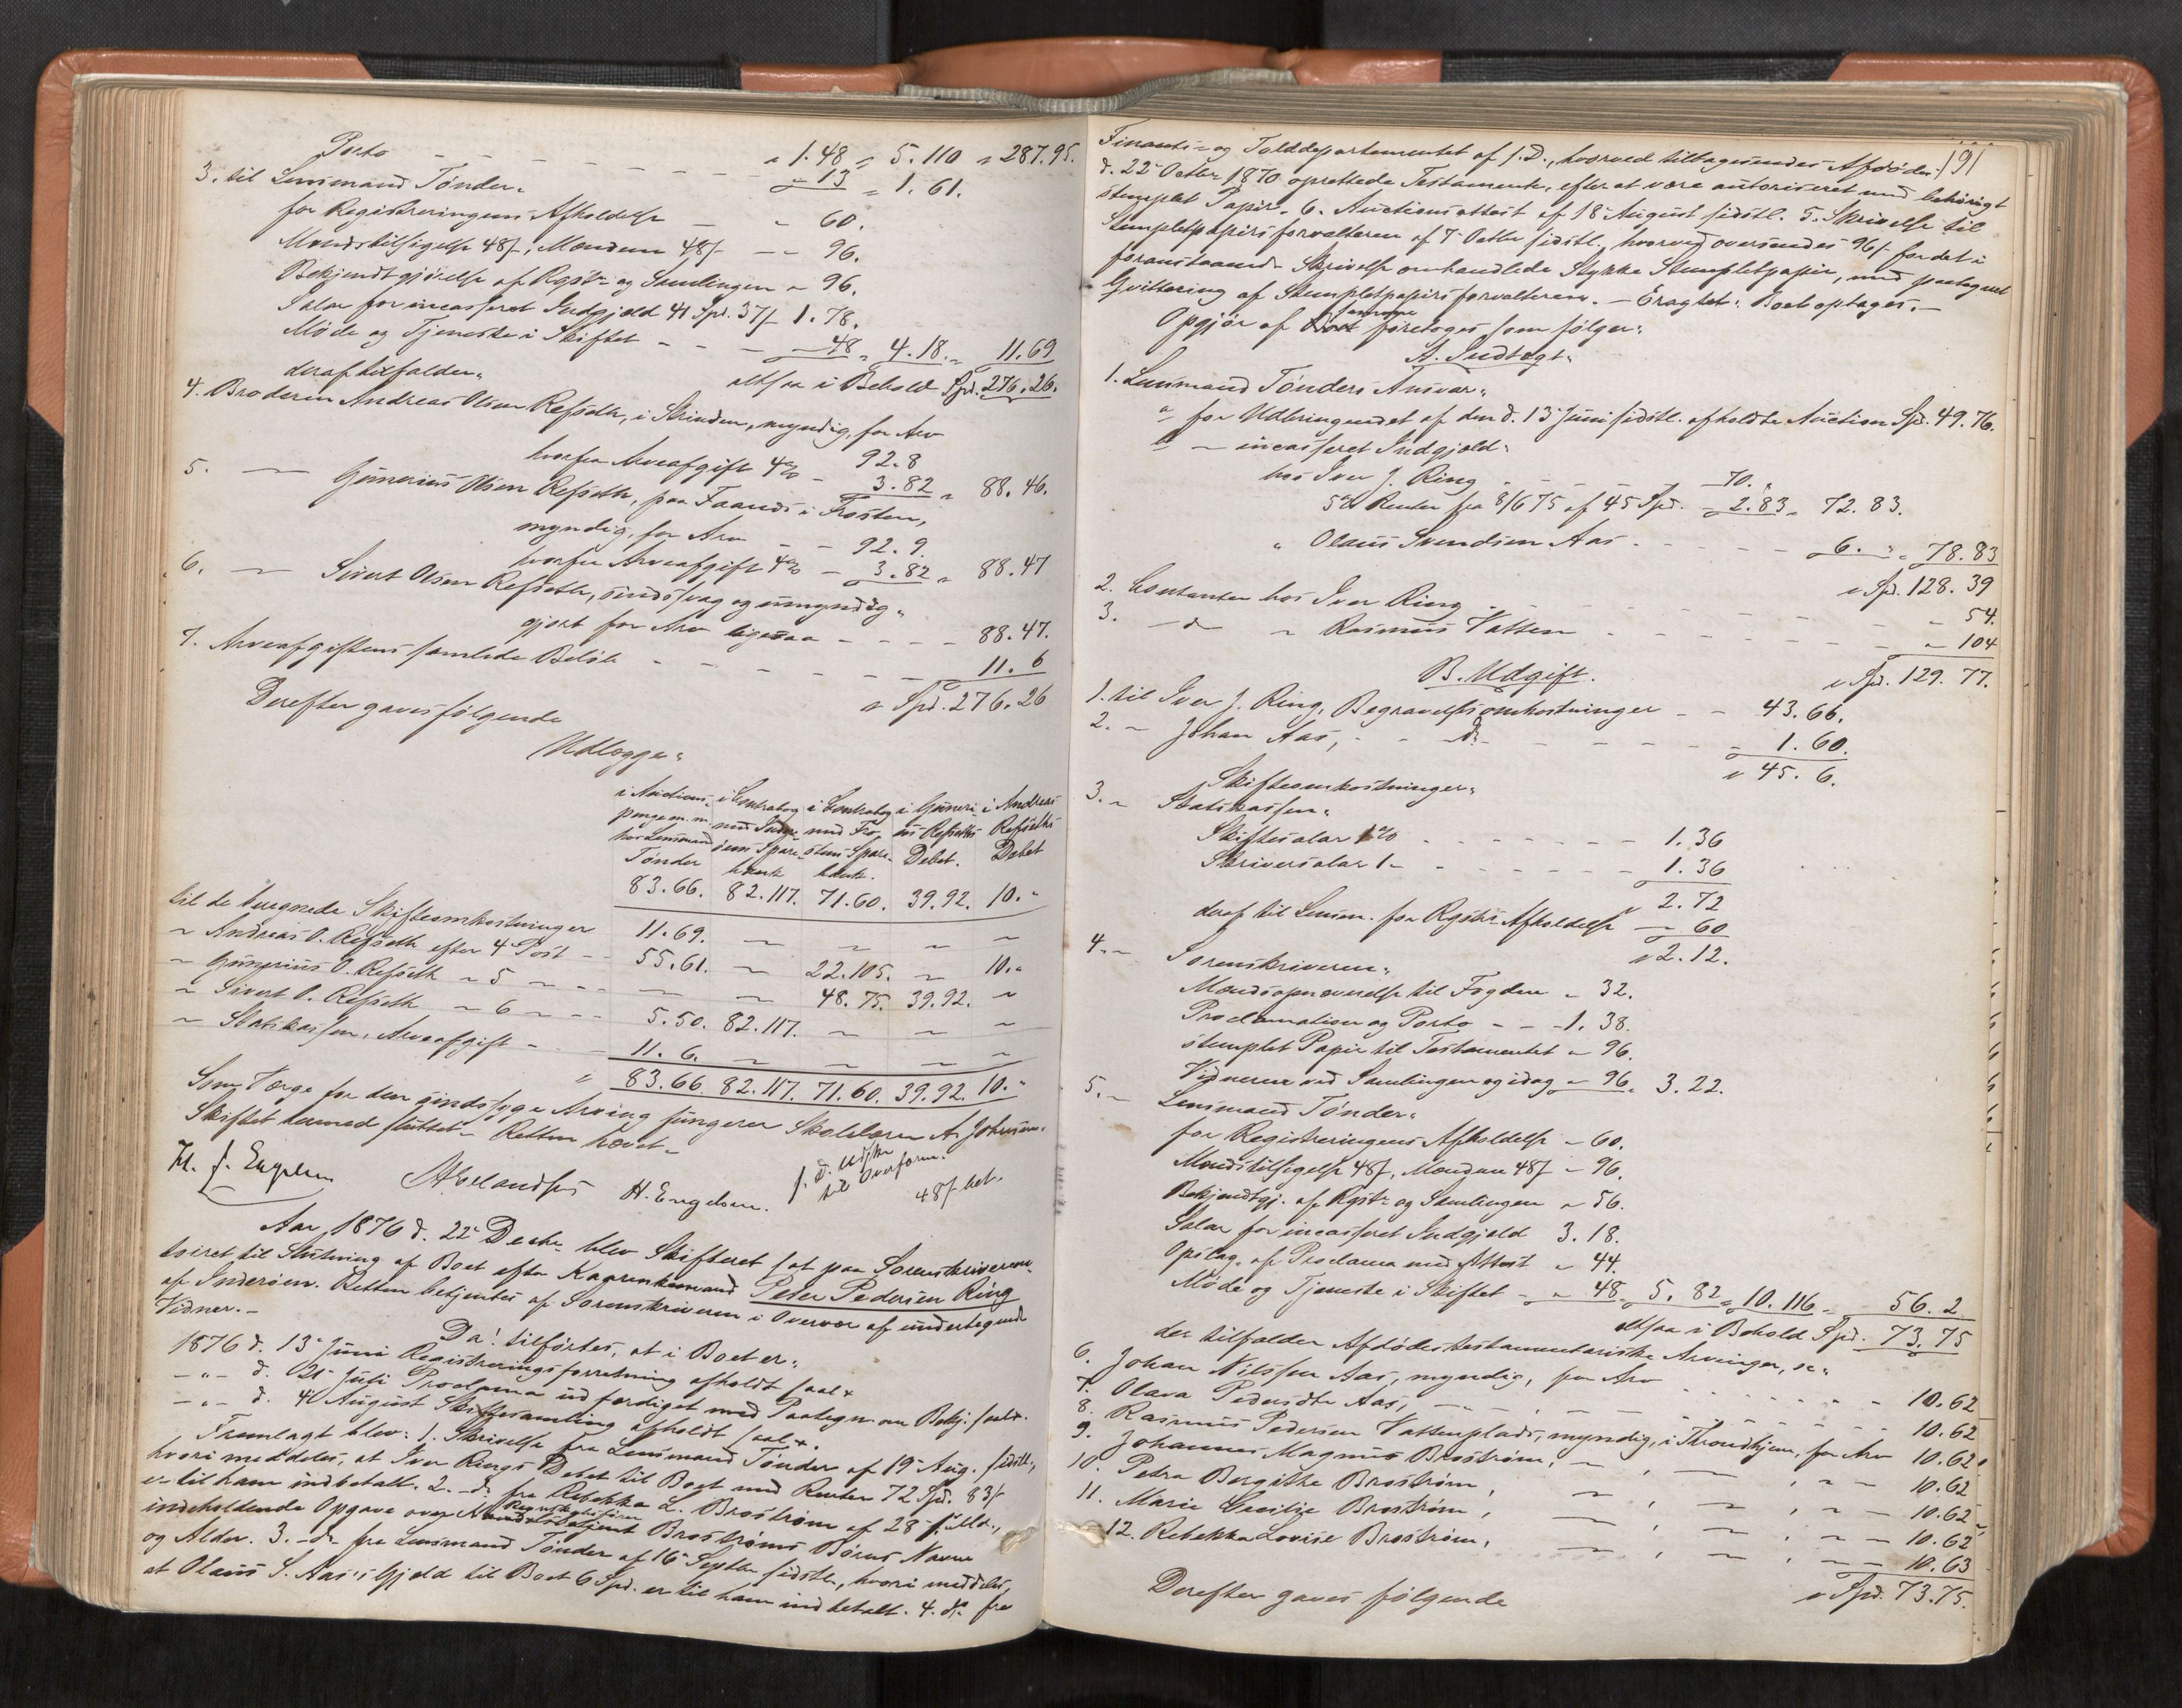 Porto - - - - - - " 1.48 " 5.110 " 287.95.
3. til Lensmand Tønder: " 13 " 1.61.
for Registreringens Afholdelse - " 60.
Mændstilsigelse 48/, Mændene 48/ - " 96.
Bekjendtgjørelse af Regstr. og Samlingen " 96.
Salar for incasseret Indgjeld 41 Spd. 37/ 1.78.
Møde og Tjeneste i Skiftet - - - " 48 " 4.18. " 11.69
altsaa i Behold Spd. 276.26.
deraf tilfalder:
4. Broderen Andreas Olsen Refseth, i Strinden, myndig, for Arv
92.8
hvorfra Arveafgift 4% - 3.82 " 88.46.
5. — Gunerius Olsen Refseth, paa Faanes i Frosten,
myndig, for Arv - - 92.9.
hvorfra Arveafgift 4% - 3.82 " 88.47
6. — Sivert Olsen Refseth, sindssvag og umyndig-
gjort for Arv ligesaa - - - - 88.47.
7. Arveafgiftens samlede Beløb - - - - - - 11.6
" Spd. 276.26
Derefter gaves følgende
Udlægge:
i Auctions- i Contrabog i Contrabog i Guneri- i Andreas
penge m. m. med Inder- med Fro- us Refseths Refseths
hos Lensmand øens Spare- stens Spare- Debet. Debet
Tønder bank bank.
83.66. 82.117. 71.60. 39.92. 10."
til de beregnede Skifteomkostninger 11.69. — — — —
" Andreas O. Refseth efter 4 Post - - 55.61. — 22.105. — 10."
" Gunerius O. Refseth " 5 — - - — — 48.75. 39.92. "
" Sivert O. Refseth " 6 — - - 5.50. 82.117. — — —
" Statskassen, Arveafgift - - 11.6. — — — —
" 83.66. 82.117. 71.60. 39.92. 10."
Som Værge for den sindssyge Arving fungerer Skolelærer A. Johnsen.
Skiftet hermed sluttet - Retten hævet. -
M. J. Engelsen H. Engelsen. f. D. Udskr. til Overform. 48/ bet.
Aar 1876 d. 22 Decbr. blev Skifteret sat paa Sorenskrivercon-
toiret til Slutning af Boet efter Kaarenkemand Peder Pedersen Ring
af Inderøen. Retten betjentes af Sorenskriveren i Overvær af undertegnede
Vidner. -
Da! tilførtes, at i Boet er:
1876 d. 13 Juni Registreringsforretning afholdt saal.
- " - d. 21 Juli Proclama udfærdiget med Paategn. om Bekj. saal.
- " - d. 4 August Skiftesamling afholdt saal.
Fremlagt blev: 1. Skrivelse fra Lensmand Tønder af 19 Aug. sidstl.,
hvori meddeles, at Iver Rings Debet til Boet med Renter 72 Spd. 83/
er til ham indbetalt. 2. do fra Rebekka L. Brostrøm af 28 s. Md.,
indeholdende Opgave over Brostrøms Børns Navne
og Alder. 3. do fra Lensmand Tønder af 16 Septbr. sidstl., hvori meddeles,
at Olaus S. Aas's Gjeld til Boet 6 Spd. er til ham indbetalt. 4. do fra
191
Finants- og Tolddepartementet af s. D., hvorved tilbagesendes Afdødes
d. 22 Octbr. 1870 oprettede Testamente, efter at være autoriseret med behørigt
stemplet Papir. 6. Auctionsattest af 18 August sidstl. 5. Skrivelse til
Stempletpapirsforvalteren af 7 Octbr. sidstl., hvorved oversendes 96/ for det i
foranstaaende Skrivelse omhandlede Stykke Stempletpapir, med paategnet
Qvittering af Stempletpapirsforvalteren. - Eragtet: Boet optages. -
Opgjør af samme foretoges som følger:
A. Indtægt:
1. Lensmand Tønders Ansvar:
a for Udbringendet af den d. 13 Juni sidstl. afholdte Auction Spd. 49.76.
b - incasseret Indgjeld:
hos Iver J. Ring - - - - 70. "
5% Renter fra 8/6 75 af 45 Spd. - 2.83 " 72.83.
" Olaus Svendsen Aas - - - - - 6. " " 78.83
" Spd. 128.39
2. Contanter hos Iver Ring - - - - - - - " 54.
3. - do " Rasmus Vatten - - - - - - " 104
" Spd. 129.77.
B. Udgift.
1. til Iver J. Ring, Begravelsesomkostninger - - 43.66.
2. " Johan Aas, - - do - - - - - " 1.60.
" 45.6.
Skifteomkostninger:
3. " Statskassen:
Skiftesalar 1% - - - - - - 1.36
Skriversalar 1 - - - - - - - 1.36
" 2.72
deraf til Lensm. for Regstr. Afholdelse - " 60
" 2.12.
4. " Sorenskriveren:
Mændsopnævnelse til Fogden " 32.
Proclamation og Porto - - 1.38.
stemplet Papir til Testamentet " 96.
Vidnerne ved Samlingen og idag " 96 " 3.22.
5. " Lensmand Tønder:
for Registreringens Afholdelse - 60.
Mændstilsigelse 48/, Mændene 48/ " 96.
Bekjendtgj. af Regstr. og Samlingen " 56.
Salar for incasseret Indgjeld 3.18.
Opslag. af Proclama med Attest " 44.
Møde og Tjeneste i Skiftet - " 48 " 5.82 " 10.116 " 56.2
altsaa i Behold Spd. 73.75
der tilfalder Afdødes testamentariske Arvinger, se:
6. Johan Nilssen Aas, myndig, for Arv - - - - - - 10.62
7. Olava Pedersdtr Aas, — , — - - - - 10.62
8. Rasmus Pedersen Vattenplads, myndig, i Throndhjem, for Arv 10.62.
9. Johannes Magnus Brostrøm, — , — , " — 10.62
10. Petra Bergithe Brostrøm, — , — , " — 10.62
11. Marie Cecilie Brostrøm, — , — , " — 10.62
12. Rebekka Lovise Brostrøm, — , — , " — 10.63
" Spd. 73.75.
Derefter gaves følgende